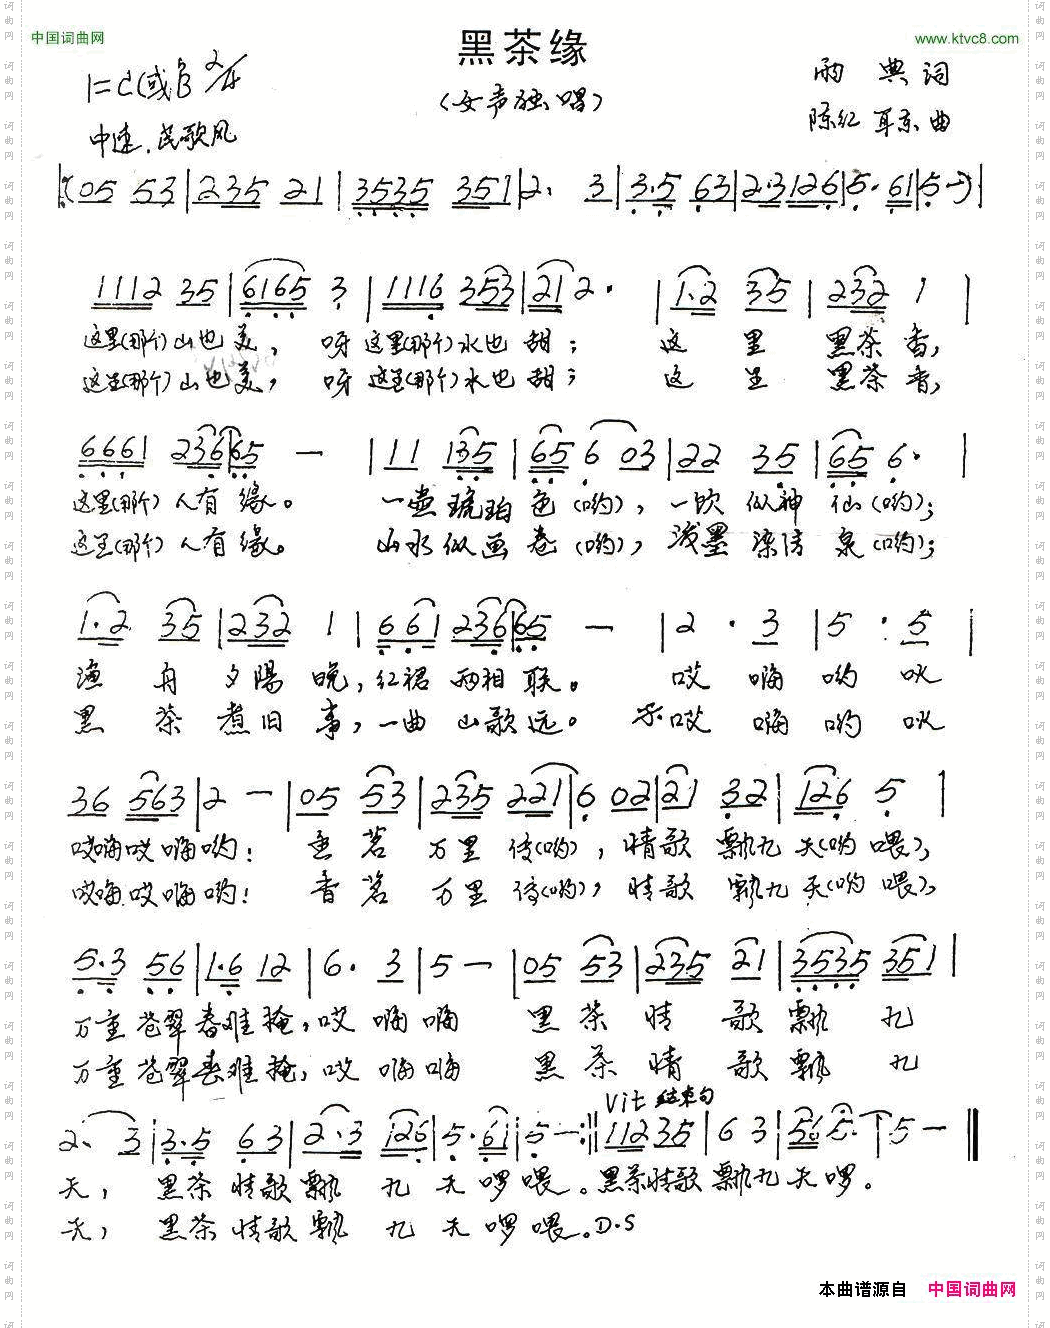 中国词曲网
黑茶缘
www.ktvc8.com
1=C(或B 2/4
(女声独唱)
雨典词
中速.民歌风
陈红 耳东曲
(05 53|235 21|3535 351|2. 3|3.5 63|2.3126|5. 61|5-)|
1112 35|6165 3|1116 353|21 2.|1.2 35|232 1|
这里(那个)山也美,呀这里(那个)水也甜;这里黑茶香,
这里(那个)山也美,呀这里(那个)水也甜;这里黑茶香,
6661 236|65 -|11 135|65 6 03|22 35|65 6.|
这里(那个)人有缘。一壶琥珀色(哟),一饮似神仙(哟);
这里(那个)人有缘。山水似画卷(哟),泼墨染清泉(哟);
1.2 35|232 1|661 236|65 -|2. 3|5. 5|
渔舟夕陽晚,红裙两相联。哎嗨哟吙
黑茶煮旧事,一曲山歌远。哎嗨哟吙
36 563|2 -|05 53|235 221|6 02|21 32|126 5|
哎嗨哎嗨哟!香茗万里传(哟),情歌飘九天(哟喂),
哎嗨哎嗨哟!香茗万里传(哟),情歌飘九天(哟喂),
5.3 56|1.6 12|6. 3|5 -|05 53|235 21|3535 351|
万重苍翠春难掩,哎嗨嗨黑茶情歌飘九
万重苍翠春难掩,哎嗨嗨黑茶情歌飘九
Vit 结束句
2. 3|3.5 63|2.3 126|5. 61|5 -:||11235|6 3|56 5.|5 -||
天,黑茶情歌飘九天啰喂。黑茶情歌飘九天啰。
天,黑茶情歌飘九天啰喂。D.S
本曲谱源自 中国词曲网